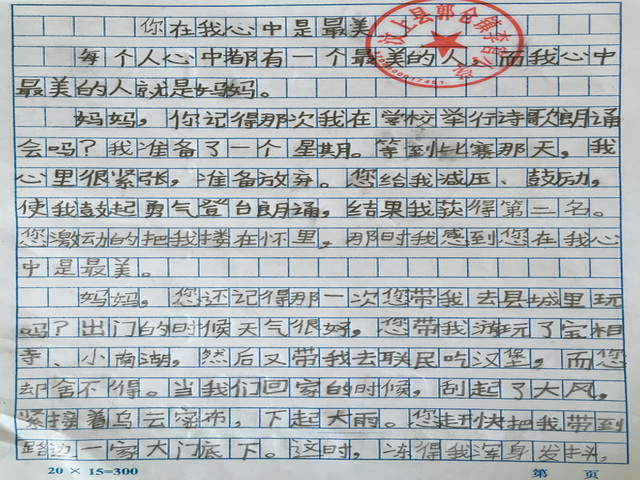 你在我心中是最美
每个人心中都有一个最美的人,而我心中
最美的人就是妈妈。
妈妈,你记得那次我在学校举行诗歌朗诵
会吗?我准备了一个星期。等到比赛那天,我
心里很紧张,准备放弃。您给我减压、鼓励,
使我鼓起勇气登台朗诵,结果我获得第二名。
您激动的把我搂在怀里,那时我感到您在我心
中是最美。
妈妈,您还记得那一次您带我去县城里玩
吗?出门的时候天气很好,您带我游玩了宝相
寺、小南湖,然后又带我去联民吃汉堡,而您
却舍不得。当我们回家的时候,刮起了大风,
紧接着乌云密布,下起大雨。您赶快把我带到
路边一家大门底下。这时,冻得我浑身发抖,
20 × 15=300
第 页
汶上县郭仓镇